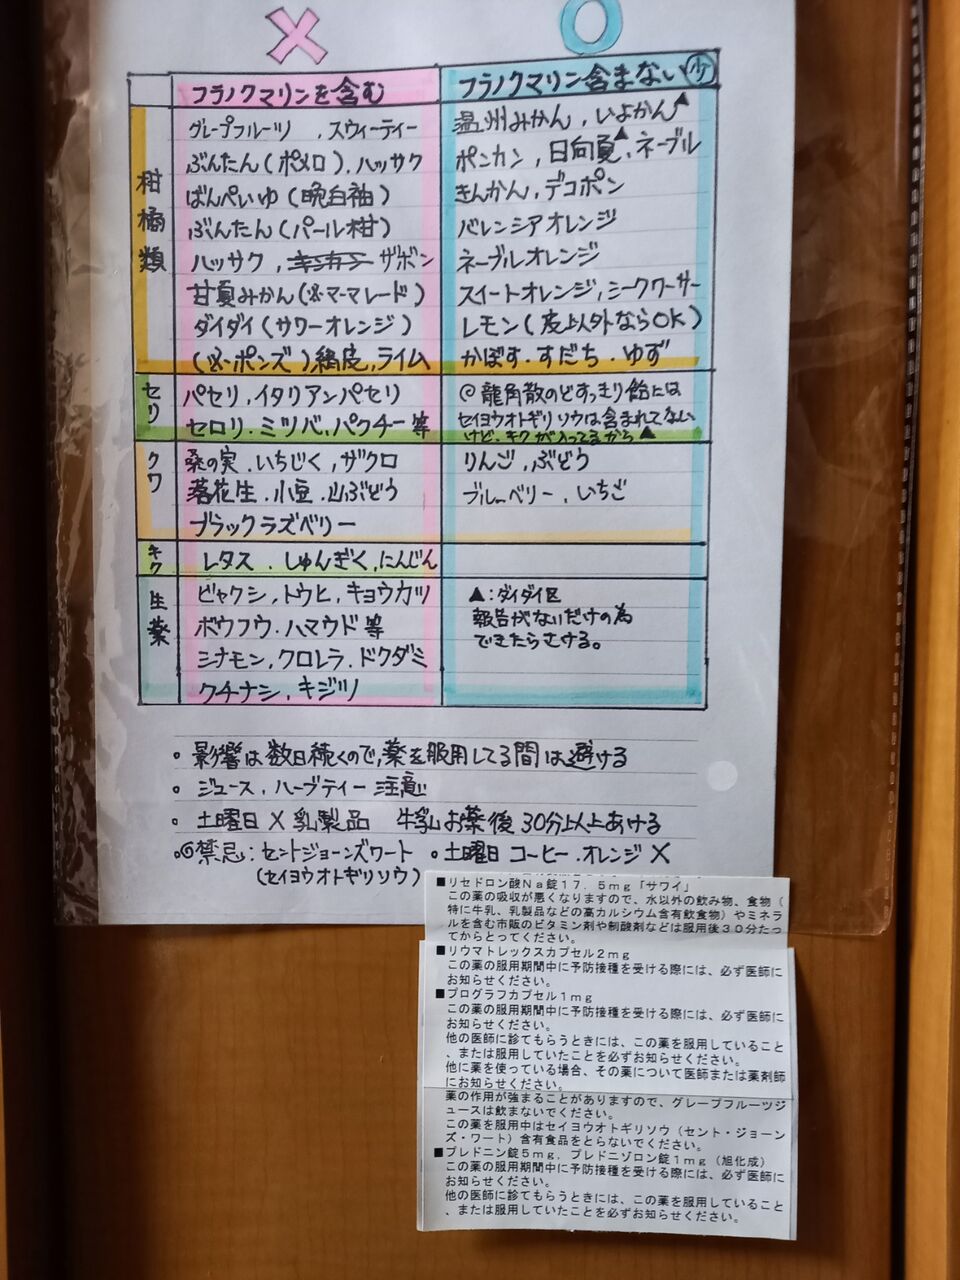 × ○
フラノクマリンを含む
フラノクマリン含まない㊛
柑橘類
グレープフルーツ、スウィーティー
ぶんたん(ポメロ)、ハッサク
ばんぺいゆ(晩白袖)
ぶんたん(パール柑)
ハッサク、キンカン ザボン
甘夏みかん(※マーマレード)
ダイダイ(サワーオレンジ)
(※ポンズ)、ライム
温州みかん、いよかん▲
ポンカン、日向夏▲、ネーブル
きんかん、デコポン
バレンシアオレンジ
ネーブルオレンジ
スイートオレンジ、シークワーサー
レモン(皮以外ならOK)
かぼす・すだち・ゆず
セリ
パセリ、イタリアンパセリ
セロリ・ミツバ、パクチー等
◎龍角散のどすっきり飴には
セイヨウオトギリソウは含まれてない
けど、キクが入ってるから▲
クワ
桑の実、いちじく、ザクロ
落花生・小豆・山ぶどう
ブラックラズベリー
りんご、ぶどう
ブルーベリー、いちご
キク
レタス・しゅんぎく、にんじん
生薬
ビャクシ、トウヒ、キョウカツ
ボウフウ・ハマウド等
シナモン、クロレラ、ドクダミ
クチナシ、キジツ
▲:ダイダイ区
報告がないだけの為
できたらさける。
。影響は数日続くので、薬を服用してる間は避ける
。ジュース、ハーブティー注意
。土曜日×乳製品 牛乳お薬後30分以上あける
。◎禁忌:セントジョーンズワート 。土曜日 コーヒー・オレンジ×
(セイヨウオトギリソウ)
■リセドロン酸Na錠17.5mg「サワイ」
この薬の吸収が悪くなりますので、水以外の飲み物、食物(
特に牛乳、乳製品などの高カルシウム含有飲食物)やミネラ
ルを含む市販のビタミン剤や制酸剤などは服用後30分たっ
てからとってください。
■リウマトレックスカプセル2mg
この薬の服用期間中に予防接種を受ける際には、必ず医師に
お知らせください。
■プログラフカプセル1mg
この薬の服用期間中に予防接種を受ける際には、必ず医師に
お知らせください。
他の医師に診てもらうときには、この薬を服用していること
、または服用していたことを必ずお知らせください。
他に薬を使っている場合、その薬について医師または薬剤師
にお知らせください。
薬の作用が強まることがありますので、グレープフルーツジ
ュースは飲まないでください。
この薬を服用中はセイヨウオトギリソウ(セント・ジョーン
ズ・ワート)含有食品をとらないでください。
■プレドニン錠5mg、プレドニゾロン錠1mg(旭化成)
この薬の服用期間中に予防接種を受ける際には、必ず医師に
お知らせください。
他の医師に診てもらうときには、この薬を服用していること
、または服用していたことを必ずお知らせください。